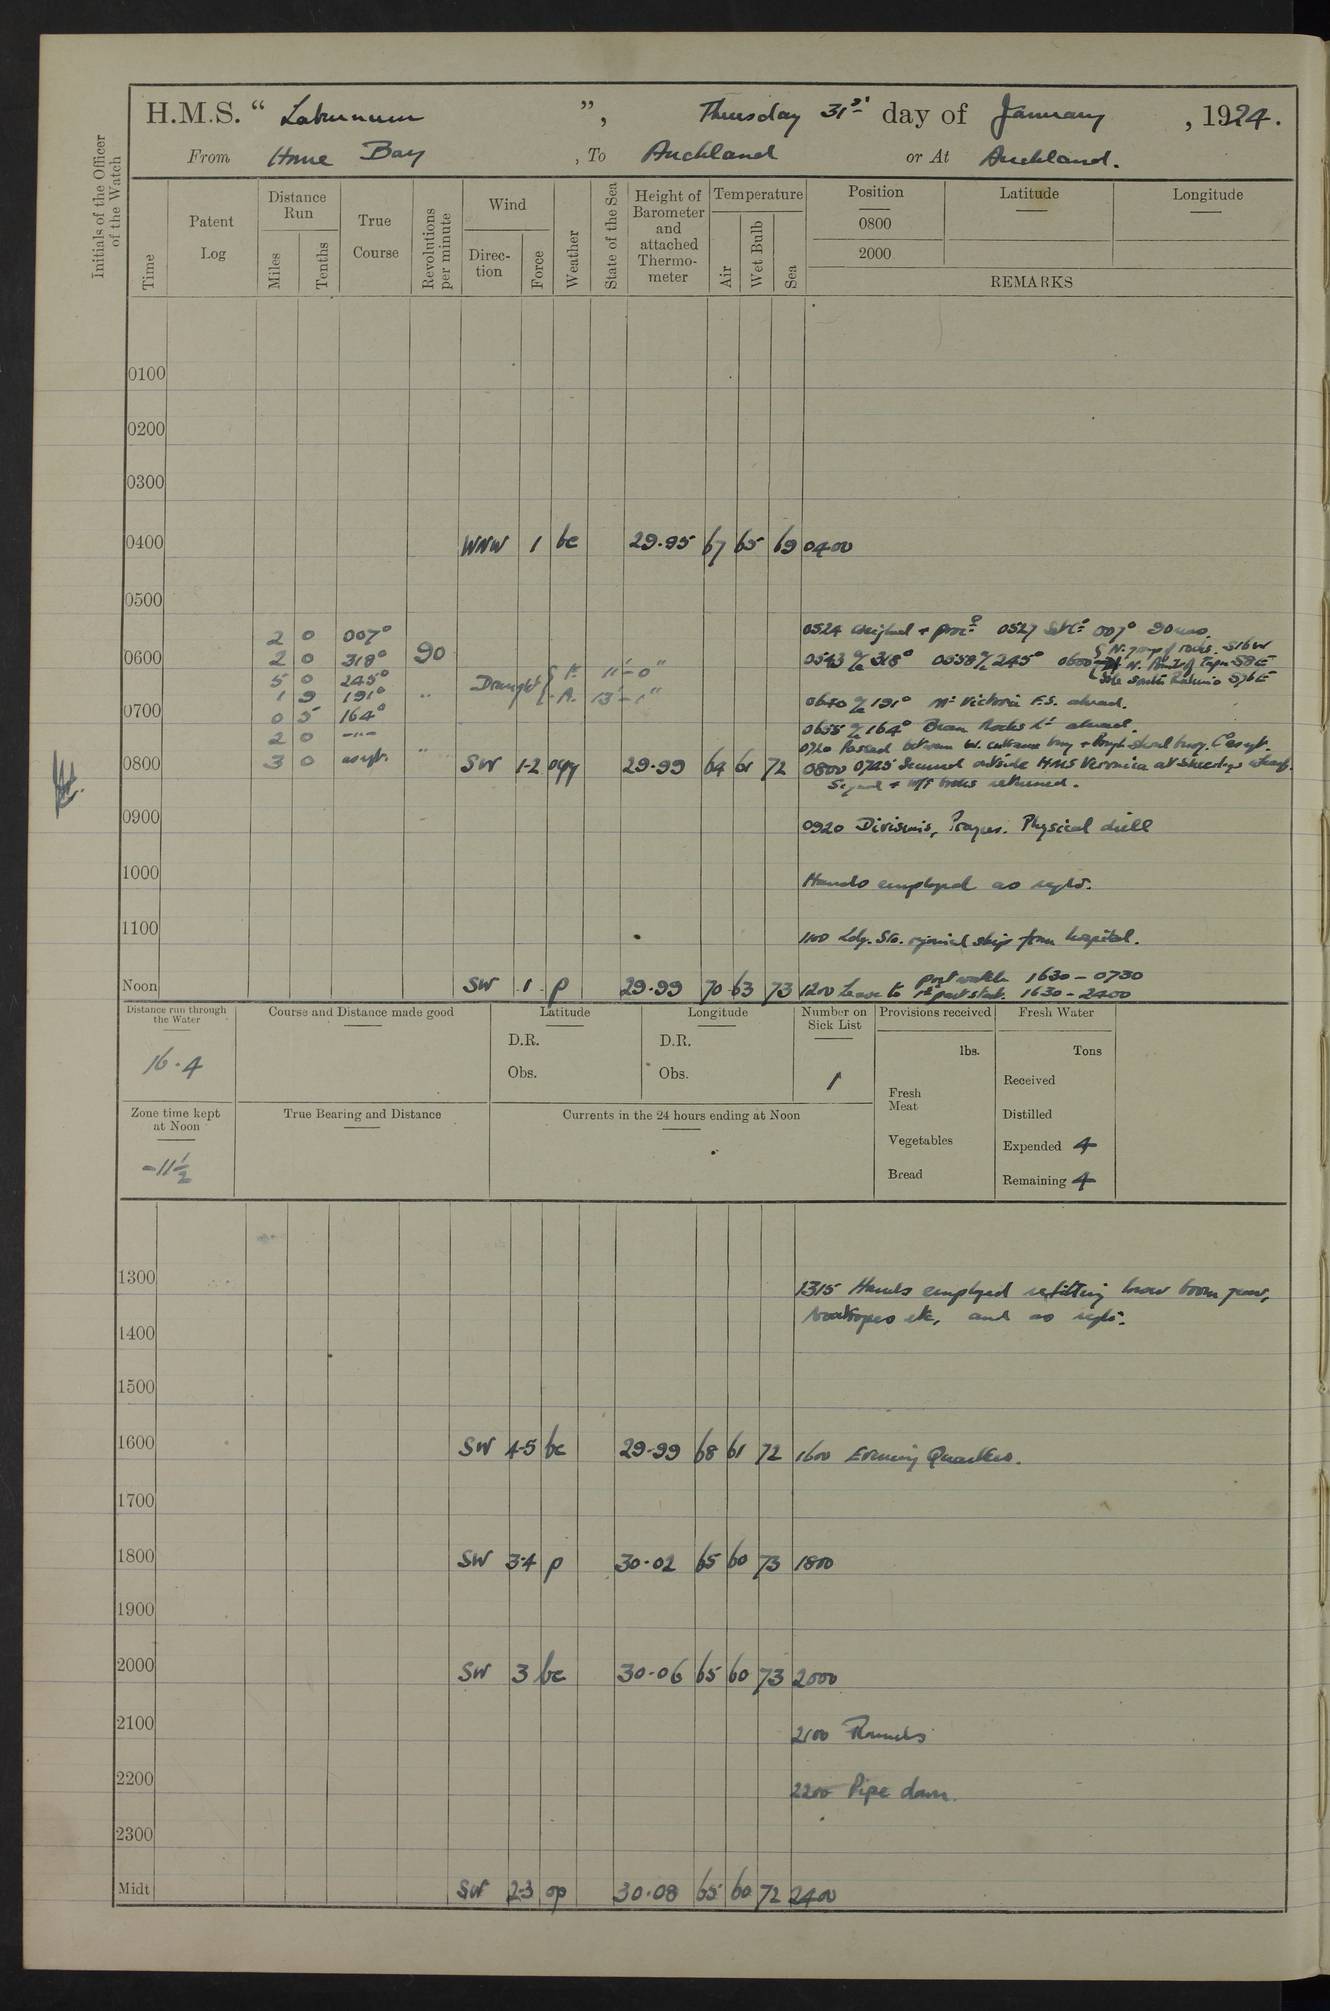 H.M.S. “ Laburnum ”, Thursday 31st day of January, 1924.
From Home Bay, To Auckland or At Auckland.
Initials of the Officer of the Watch
Time
Patent Log
Distance Run
Miles
Tenths
True Course
Revolutions per minute
Wind
Direction
Force
Weather
State of the Sea
Height of Barometer and attached Thermometer
Temperature
Air
Wet Bulb
Sea
Position
Latitude
Longitude
0800
2000
REMARKS
0100
0200
0300
0400 WNW 1 bc 29.95 67 65 69 0400
0500
2 0 007° 0524 Weighed + proc. 0527 007° 90
0600 2 0 318° 90 0543 a/c 318° 0558 a/c 245° 0600 N. of rocks. S16W
N. S8E
5 0 245° Draught F. 11'-0" South Rakino S76E
1 9 191° " A. 13'-1" 0640 a/c 191° Mt Victoria F.S. ahead.
0700 0 5 164° 0655 a/c 164° Bean Rocks Lt ahead.
2 0 -"- 0720 Passed between W. entrance buoy + Rough shoal buoy. Co as reqt.
0800 3 0 as reqt. " SW 1-2 29.99 64 61 72 0800 0745 Secured outside HMS Veronica at Sheerlegs wharf.
Signal + W/T books returned.
0900 0920 Divisions, Prayers. Physical drill
1000 Hands employed as reqd.
1100 1100 Ldg. Sto. rejoined ship from hospital.
Noon SW 1 p 29.99 70 63 73 1200 Leave to port watch 1630 - 0730
1st part stab. 1630 - 2400
Distance run through the Water
16.4
Course and Distance made good
Latitude
D.R.
Obs.
Longitude
D.R.
Obs.
Number on Sick List
1
Provisions received
lbs.
Fresh Meat
Vegetables
Bread
Fresh Water
Tons
Received
Distilled
Expended 4
Remaining 4
Zone time kept at Noon
-11½
True Bearing and Distance
Currents in the 24 hours ending at Noon
1300 1315 Hands employed refitting lower boom gear,
boatropes etc, and as reqd.
1400
1500
1600 SW 4-5 bc 29.99 68 61 72 1600 Evening Quarters.
1700
1800 SW 3-4 p 30.02 65 60 73 1800
1900
2000 SW 3 bc 30.06 65 60 73 2000
2100 2100 Rounds
2200 2200 Pipe down.
2300
Midt SW 2-3 op 30.08 65 60 72 2400